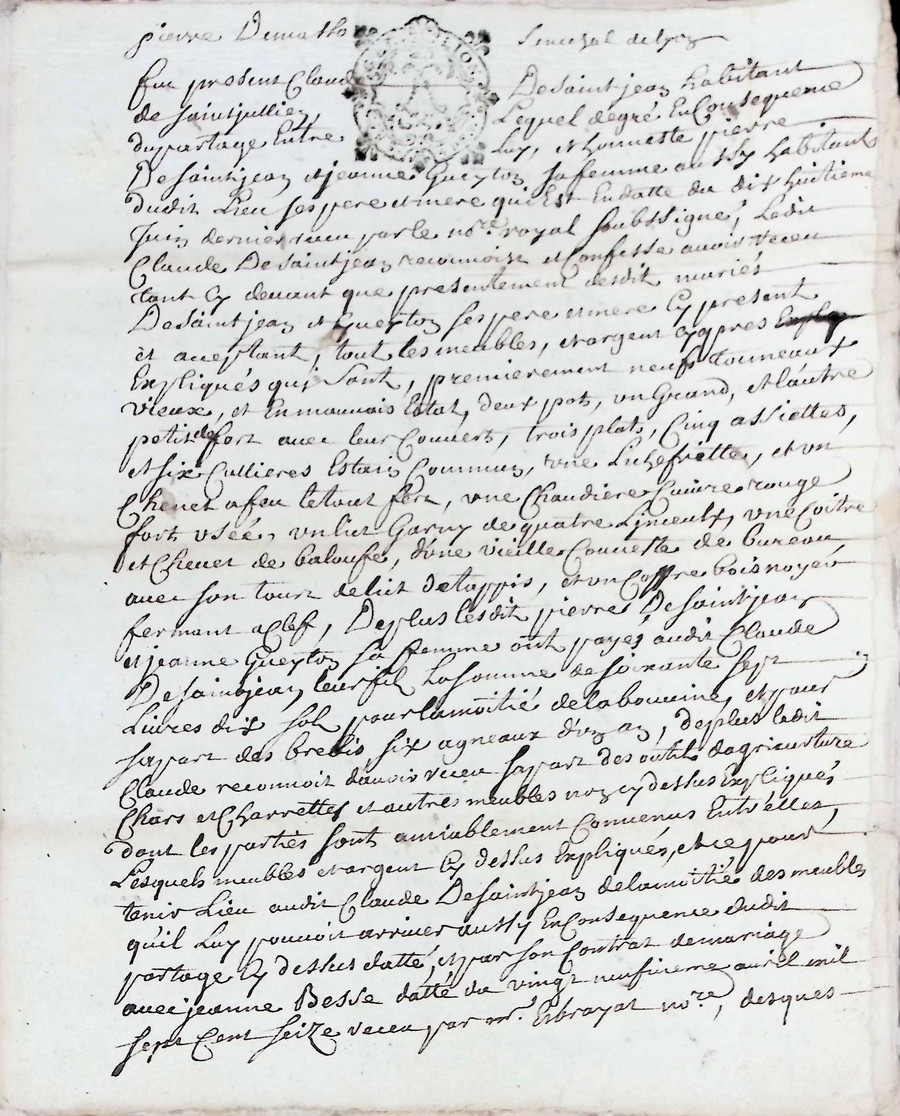 pierre Dumas Senechal de Lyon
fut present Claude Desaintjean habitant
de saintjullien, Lequel degré En Consequence
dupartage Entre Luy, et honneste pierre
Desaintjean et jeanne Gueyton sa femme aussy habitant
dudit Lieu ses pere et mere qui Est En datte du dix huitieme
Juin dernier receu par le nore. royal soubssigné, Ledit
Claude Desaintjean reconnoist et Confesse avoir receu
tant Cy devant que presentement desdit mariés
Desaintjean et Gueyton ses pere et mere Cy present
et aceptant, tout les meubles, et argent Cy apres
Expliqués qui sont, premierement neufs tonneaux
vieux, et En mauvais Estat, deux pots, un Grand, et l'autre
petit de fert avec leur Couvert, trois plats, Cinq assiettes,
et six Cullieres Estain Commun, une Lichefriette, et un
Chenet a feu le tout fert, une Chaudiere Cuivre rouge
fort usée, un lict Garny de quatre Linceulx, une Coitre
et Chevet de baloufe, d'une vieille Couverte de bureau
avec son tourt de lict de tappis, et un Coffre bois noyer
fermant a Clef, De plus lesdit pierre Desaintjean
et jeanne Gueyton sa femme ont payés audit Claude
Desaintjean leur fils La somme de soixante sept
Livres dix sols pour la moitié de la bouvine, et pour
sa part des brebis six agneaux d'un an, de plus ledit
Claude reconnoit d'avoir receu sa part des outils dagricurture
Chars et Charrettes et autres meubles non cy dessus Expliqués
dont les parties sont amiablement Convenus Entr'elles,
Lesquels meubles et argent Cy dessus Expliqués, et ce pour
tenir Lieu audit Claude Desaintjean de la moitié des meubles
qu'il Luy pouvoit arriver aussy En Consequence dudit
partage Cy dessus datté, et par son Contrat de mariage
avec jeanne Besse datté du vingt neufvieme avril mil
sept Cent seize receu par mr. nore, desques